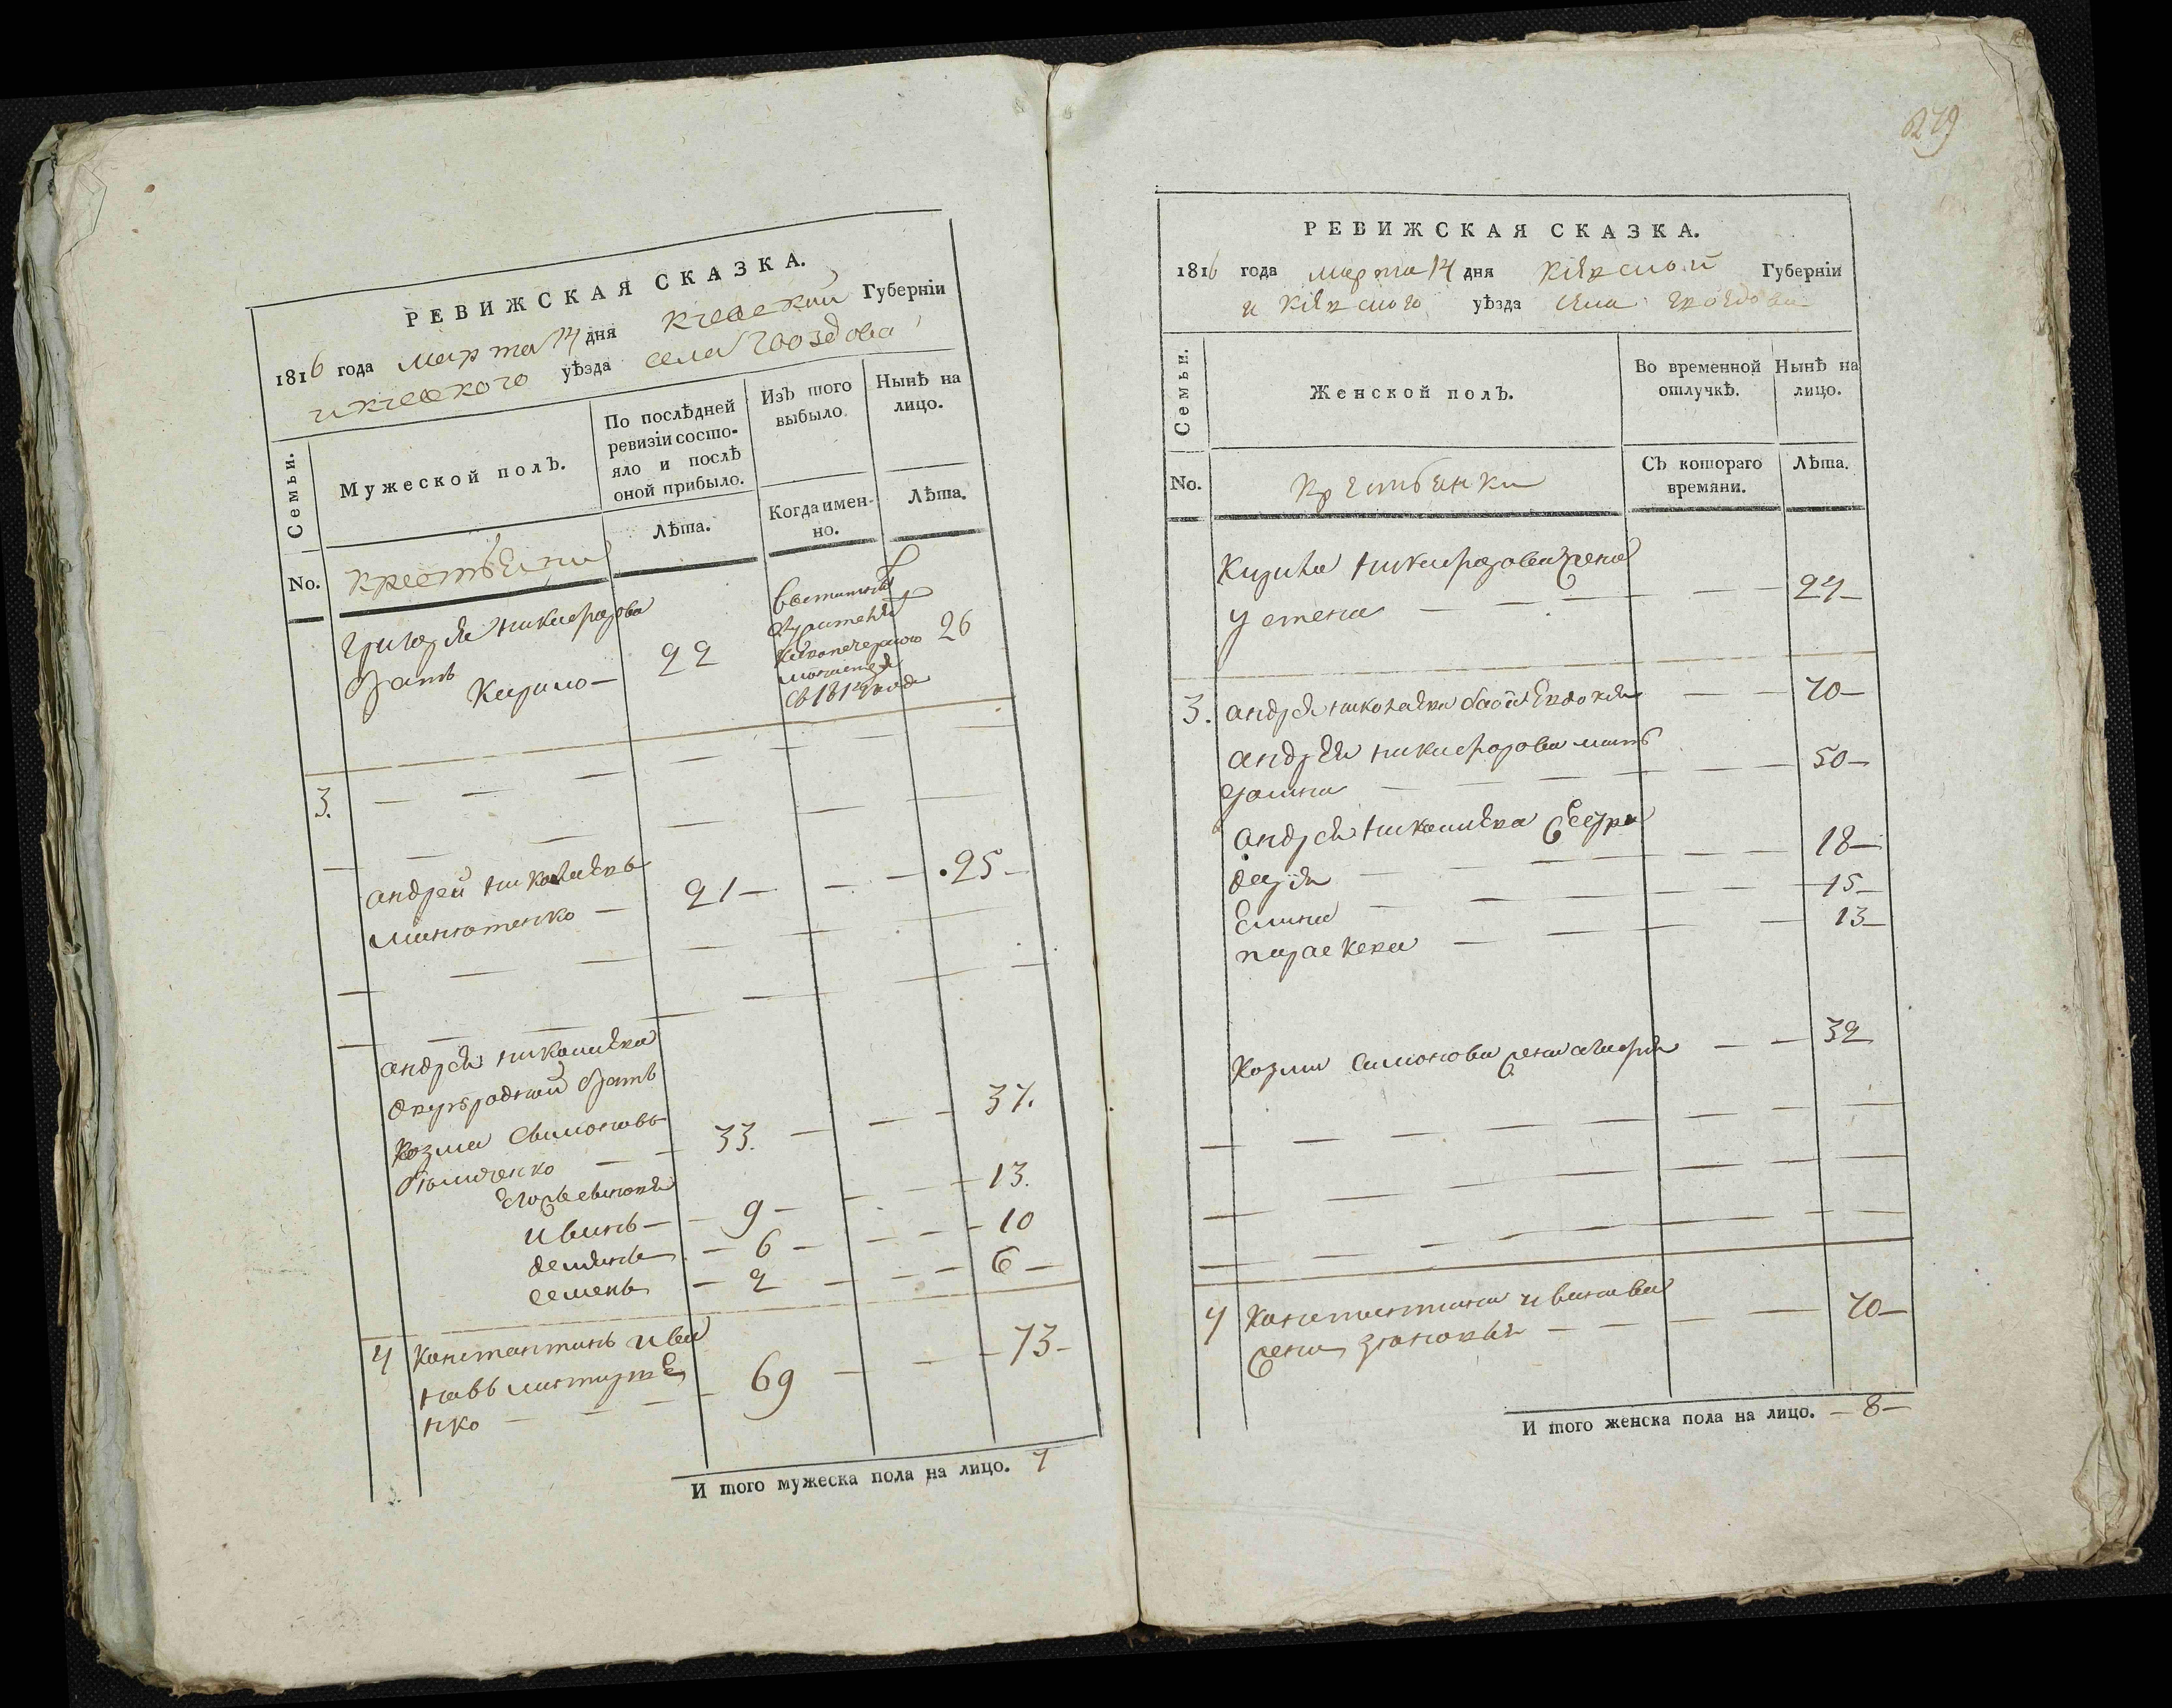 РЕВИЖСКАЯ СКАЗКА.
1816 года марта 14 дня Киевской Губерніи
и Киевского уѣзда села Гвоздова
Семьи.
Мужеской полъ.
По послѣдней
ревизіи состо-
яло и послѣ
оной прибыло.
Изъ того
выбыло.
Нынѣ на
лицо.
No.
крестьяни
Лѣта.
Когда имен-
но.
Лѣта.
Григорія Никифорова
братъ
Кирило 22 26
3.
Андрей Николаевъ
21 25
Андрея Николаева
двоюродный братъ
Козма Симоновъ
33. 37.
13.
Иванъ 9
Демянъ 6 10
Семенъ 2 6
4 Константинъ Ива
новъ
нко 69 73
И того мужеска пола на лицо. 7
279
РЕВИЖСКАЯ СКАЗКА.
1816 года марта 14 дня Кіевской Губерніи
и Кіевского уѣзда села Гвоздова
Семьи.
Женской полъ.
Во временной
отлучкѣ.
Нынѣ на
лицо.
No.
крестьянки
Съ котораго
времяни.
Лѣта.
Кирила Никифорова жена
Устена 24
3. Андрея Николаева баба Евдокия 70
Андрея Никифорова мать
50
Андрея Николаева сестры
Дарія 18
Елина 15
Параскева 13
Козми Симонова жена 32
4 Константина Иванова
жена Зеновия 70
И того женска пола на лицо. 8